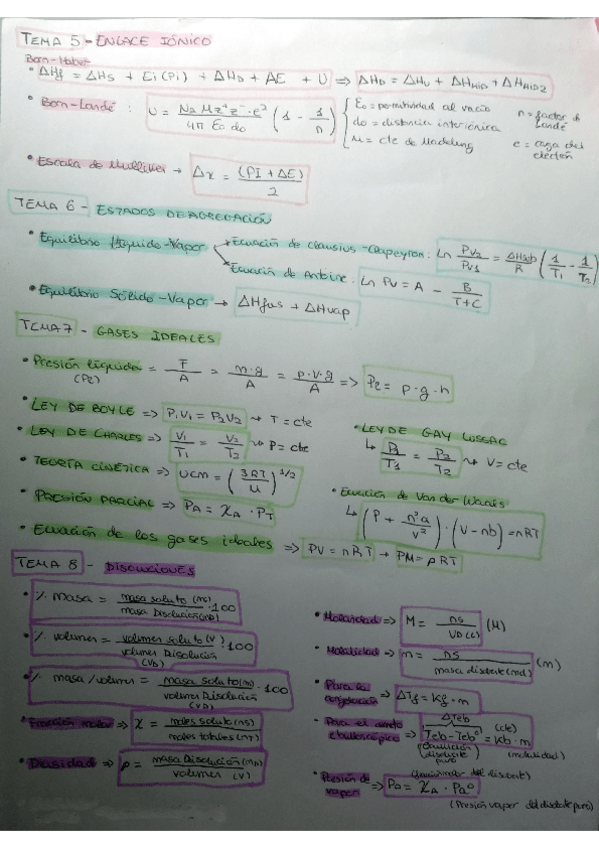 TEMA 5 - ENLACE IÓNICO
Born-Haber
• ΔHf = ΔHs + Ei (Pi) + ΔHD + AE + U ⇒ ΔHD = ΔHU + ΔHHID + ΔHHID2
• Born-Landé : U = Na M z⁺ z⁻ · e² / 4π Eo do (1 - 1/n)
Eo = permitividad al vacío
do = distancia interiónica
M = cte de Madelung
n = factor de Landé
e = carga del electrón
• Escala de Mulliken → Δx = (PI + ΔE) / 2
TEMA 6 - ESTADOS DE AGREGACIÓN
• Equilibrio líquido-Vapor
Ecuación de Clausius-Clapeyron: Ln Pv2/Pv1 = ΔHsub/R (1/T1 - 1/T2)
Ecuación de Antoine: Ln Pv = A - B/(T+C)
• Equilibrio Sólido-Vapor → ΔHfus + ΔHvap
TEMA 7 - GASES IDEALES
• Presión líquido (PL) = F/A = m·g/A = ρ·V·g/A => PL = ρ·g·h
• LEY DE BOYLE => P1V1 = P2V2 → T = cte
• LEY DE CHARLES => V1/T1 = V2/T2 → P = cte
• LEY DE GAY LUSSAC
↳ P1/T1 = P2/T2 → V = cte
• TEORÍA CINÉTICA => Ucm = (3RT/M)^1/2
• PRESIÓN PARCIAL => PA = XA · PT
• Ecuación de Van der Waals
↳ (P + n²a/V²) · (V - nb) = nRT
• Ecuación de los gases ideales => PV = nRT → PM = ρRT
TEMA 8 - DISOLUCIONES
• % masa = masa soluto (ms) / masa Disolución (mD) · 100
• % volumen = volumen soluto (V) / volumen Disolución (VD) · 100
• % masa/volumen = masa soluto (m) / volumen Disolución (VD) · 100
• Fracción molar => X = moles soluto (ns) / moles totales (nT)
• Densidad => ρ = masa Disolución (mD) / volumen (V)
• Molaridad => M = ns / VD (L) (M)
• Molalidad => m = ns / masa disolvte (md) (m)
• Para la congelación => ΔTf = Kf · m
• Para el punto ebulloscópico => ΔTeb
Teb - Teb⁰ = Kb · m
(cte)
(ebullición disolvte puro)
(molalidad)
• Presión de vapor => PA = XA · PA⁰
(Presión vapor del disolvte puro)